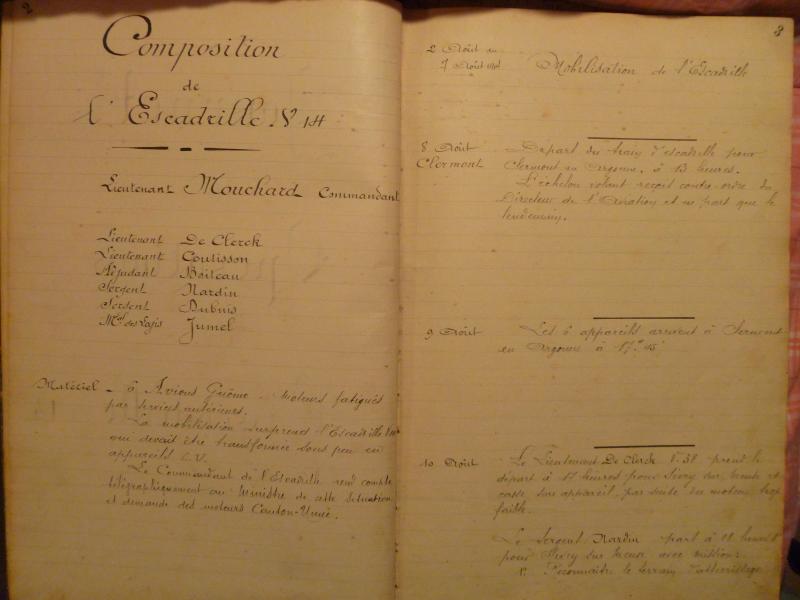 2
Composition
de
l'Escadrille V 14
Lieutenant Mouchard Commandant
Lieutenant De Clerck
Lieutenant Coutisson
Adjudant Boiteau
Sergent Nardin
Sergent Dubuis
Mal des Logis Jumel
Matériel - 6 Avions Gnôme - moteurs fatigués
par services antérieurs.
La mobilisation surprend l'Escadrille
qui devait être transformée sous peu en
appareils L.V.
Le Commandant de l'Escadrille rend compte
télégraphiquement au Ministre de cette situation
et demande des moteurs Canton-Unné.
3
2 Août au
7 Août Mobilisation de l'Escadrille
8 Août Départ du train d'escadrille pour
Clermont Clermont en Argonne, à 13 heures.
L'échelon volant reçoit contre-ordre du
Directeur de l'Aviation et ne part que le
lendemain.
9 Août Les 6 appareils arrivent à Clermont
en Argonne à 17h 45
10 Août Le Lieutenant De Clerck V. 38 prend le
départ à 17 heures pour Sivry sur Meuse et
casse son appareil, par suite du moteur trop
faible.
Le Sergent Nardin part à 18 heures
pour Sivry sur Meuse avec mission:
1° Reconnaître le terrain d'atterrissage